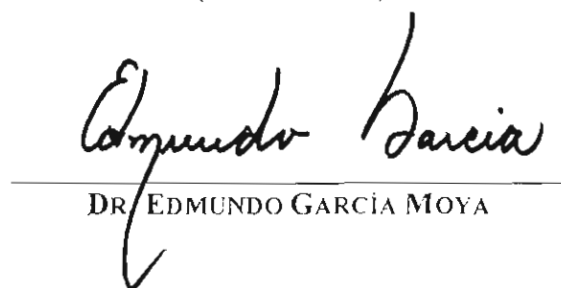 Edmundo Garcia
DR. EDMUNDO GARCÍA MOYA